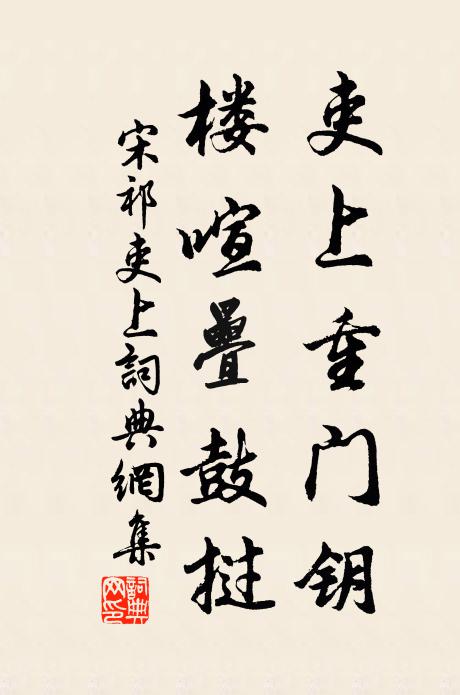 吏上重门钥
楼喧疊鼓挝
宋祁吏上詞典網集
詞典網印